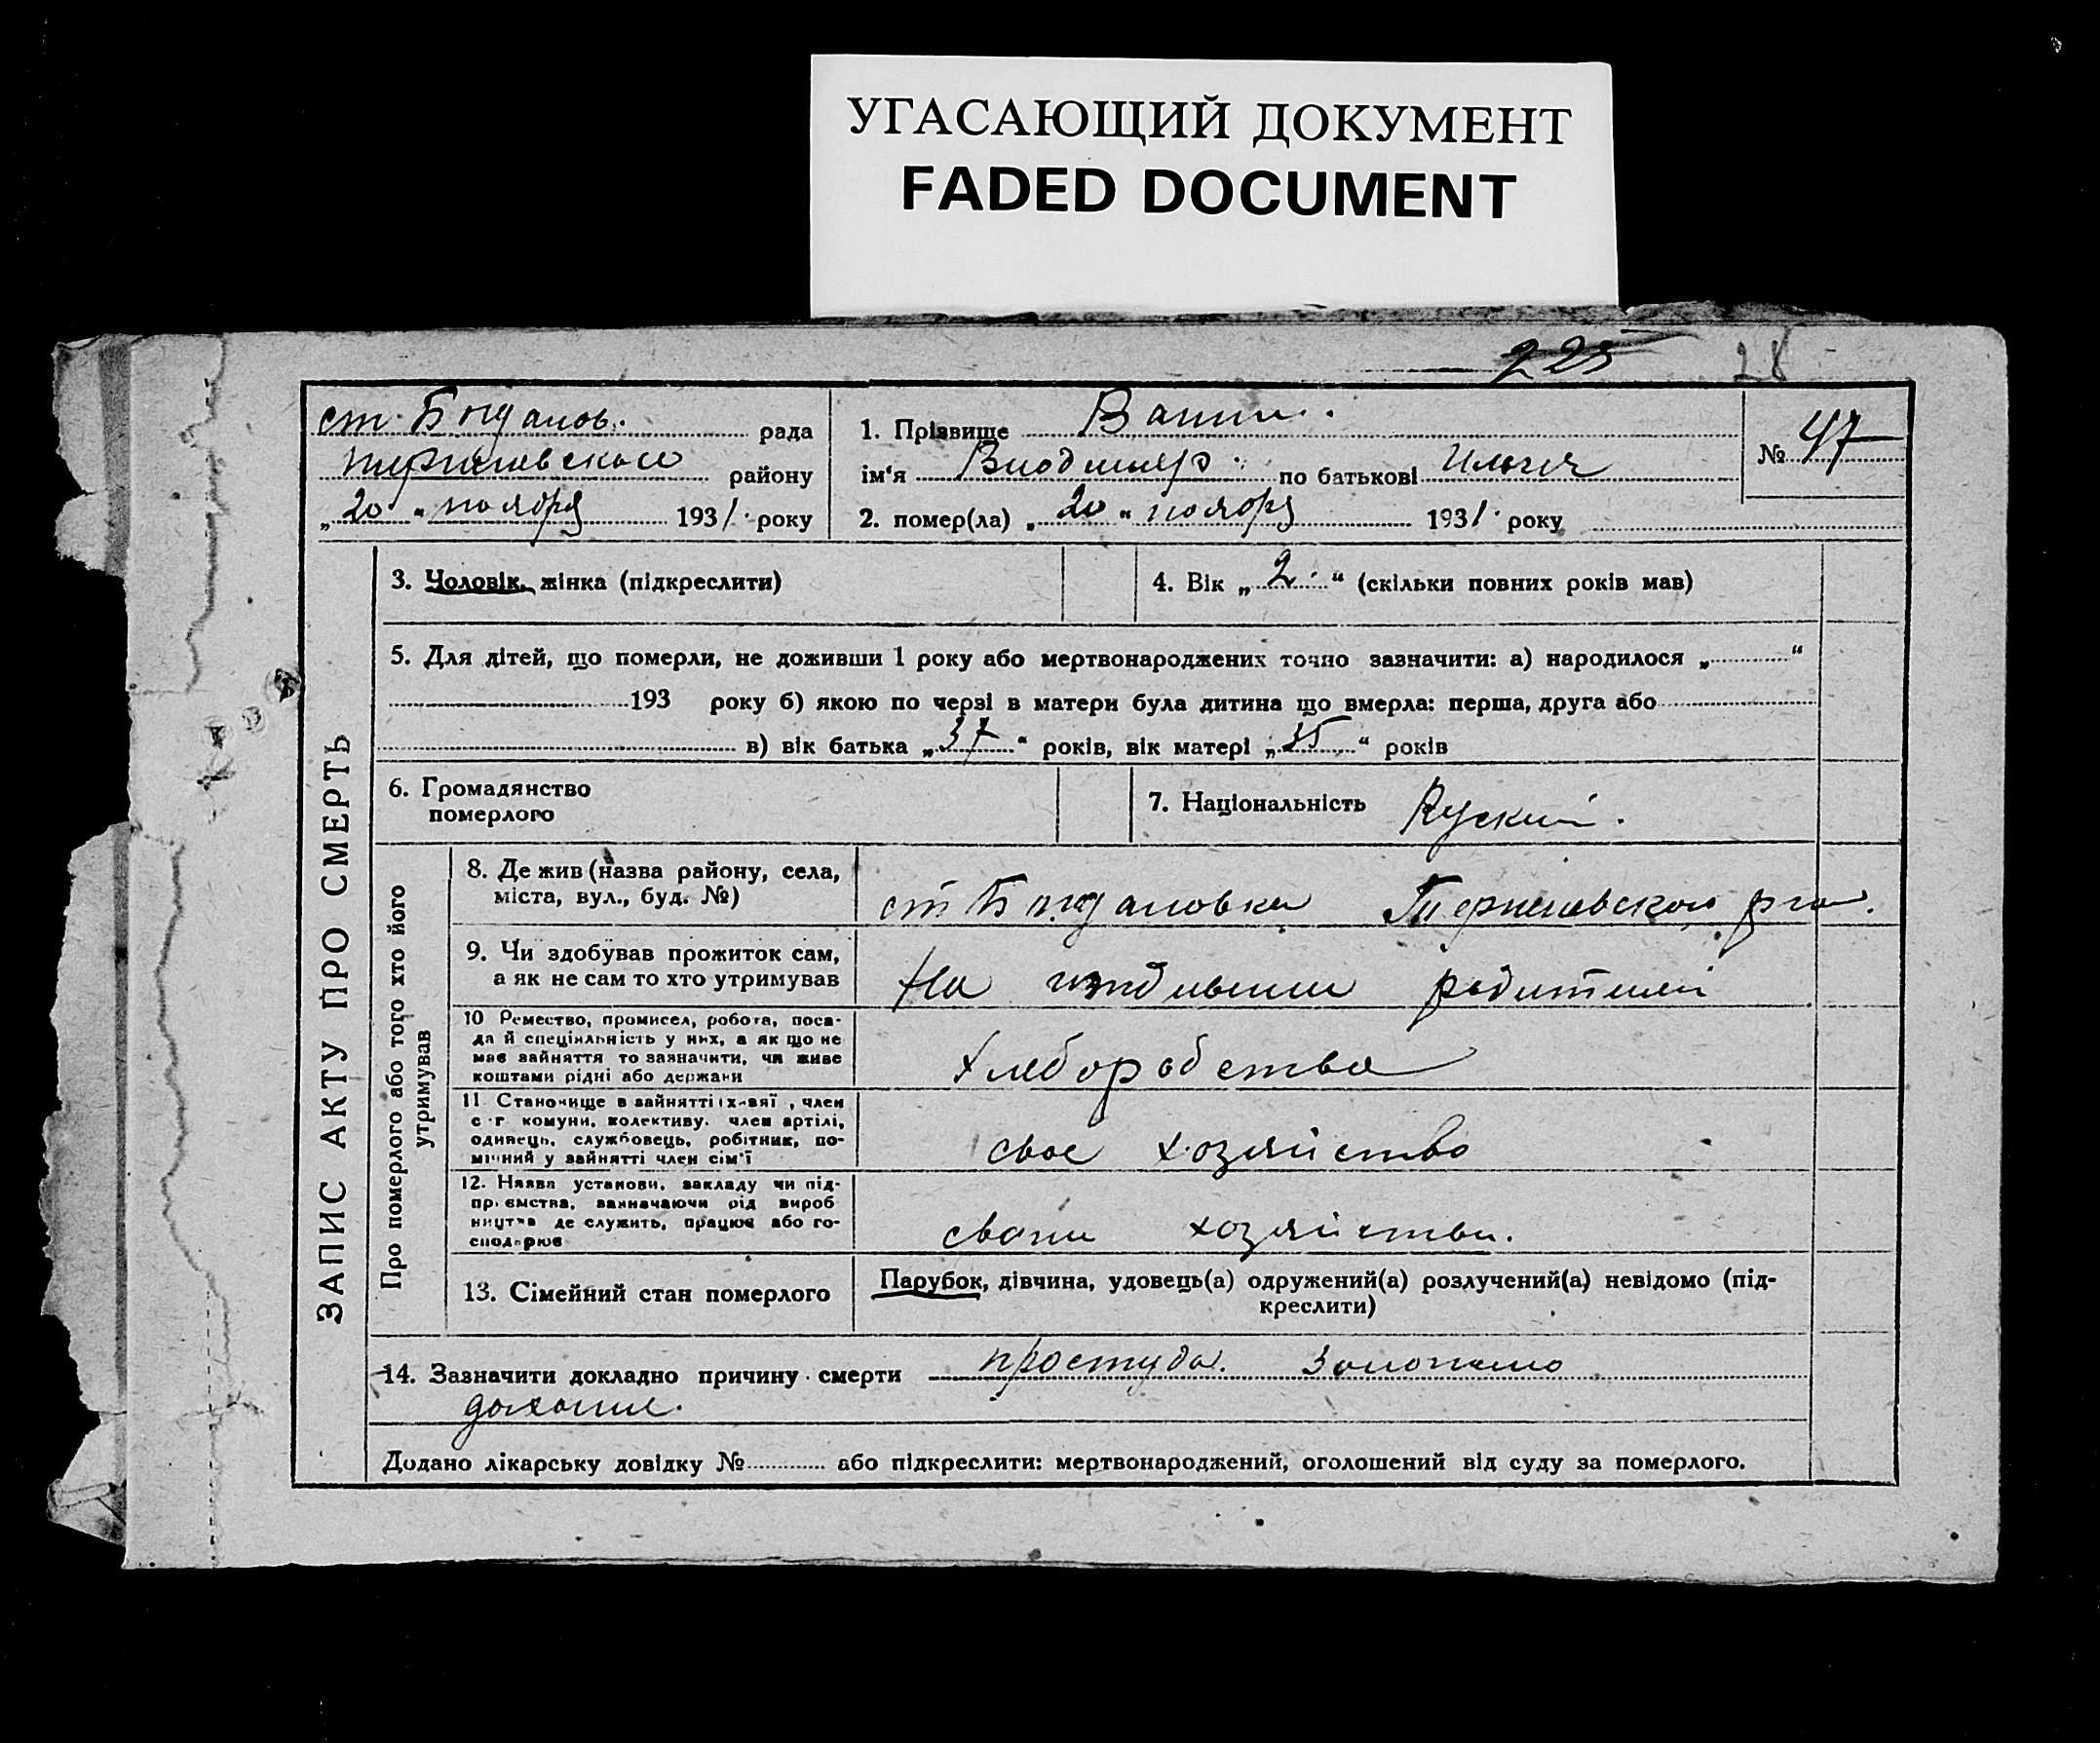 УГАСАЮЩИЙ ДОКУМЕНТ
FADED DOCUMENT
225 28
ст. Богданов. рада
району
„20“ ноября 1931. року
1. Прізвище
ім‘я Влодимер по батькові Ильич
2. помер(ла) „20“ ноября 1931. року
№ 47
ЗАПИС АКТУ ПРО СМЕРТЬ
3. Чоловік, жінка (підкреслити)
4. Вік „2.“ (скільки повних років мав)
5. Для дітей, що померли, не доживши 1 року або мертвонароджених точно зазначити: а) народилося „ “
193 року б) якою по черзі в матери була дитина що вмерла: перша, друга або
в) вік батька „37“ років, вік матері „35“ років
6. Громадянство
померлого
7. Національність Руский.
Про померлого або того хто його
утримував
8. Де жив (назва району, села,
міста, вул., буд. №)
ст Богдановка
9. Чи здобував прожиток сам,
а як не сам то хто утримував
На иждивении родителей
10 Ремество, промисел, робота, поса-
да й спеціяльність у них, а як що не
має зайняття то зазначити, чи живе
коштами рідні або держави
Хлеборобства
11 Становище в зайнятті , член
с-г комуни, колективу, член артілі,
одинець, службовець, робітник, по-
мічний у зайнятті член сім'ї
свое хозяйство
12. Назва установи, закладу чи під-
приємства, зазначаючи рід вироб
ництва де служить, працює або го-
сподарює
хозяйстви.
13. Сімейний стан померлого
Парубок, дівчина, удовець(а) одружений(а) розлучений(а) невідомо (під-
креслити)
14. Зазначити докладно причину смерти простуда.
Додано лікарську довідку № або підкреслити: мертвонароджений, оголошений від суду за померлого.